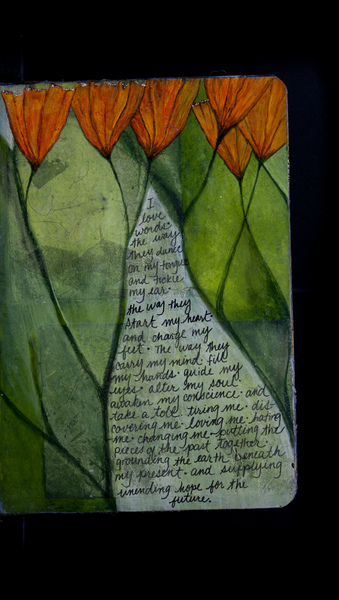 I
love
words.
the way
they dance
on my tongue
and tickle
my ear.
the way they
start my heart.
and change my
feet. The way they
carry my mind. fill
my hands. guide my
eyes. alter my soul.
awaken my conscience. and
take a toll. tiring me. dis-
covering me. loving me. hating
me. changing me. putting the
pieces of the past together.
grounding the earth beneath
my present. and supplying
unending hope for the
future.